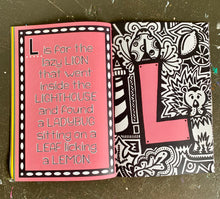 L is for the
lazy LION
that went
inside the
LIGHTHOUSE
and found
a LADYBUG
sitting on a
LEAF licking
a LEMON.
L